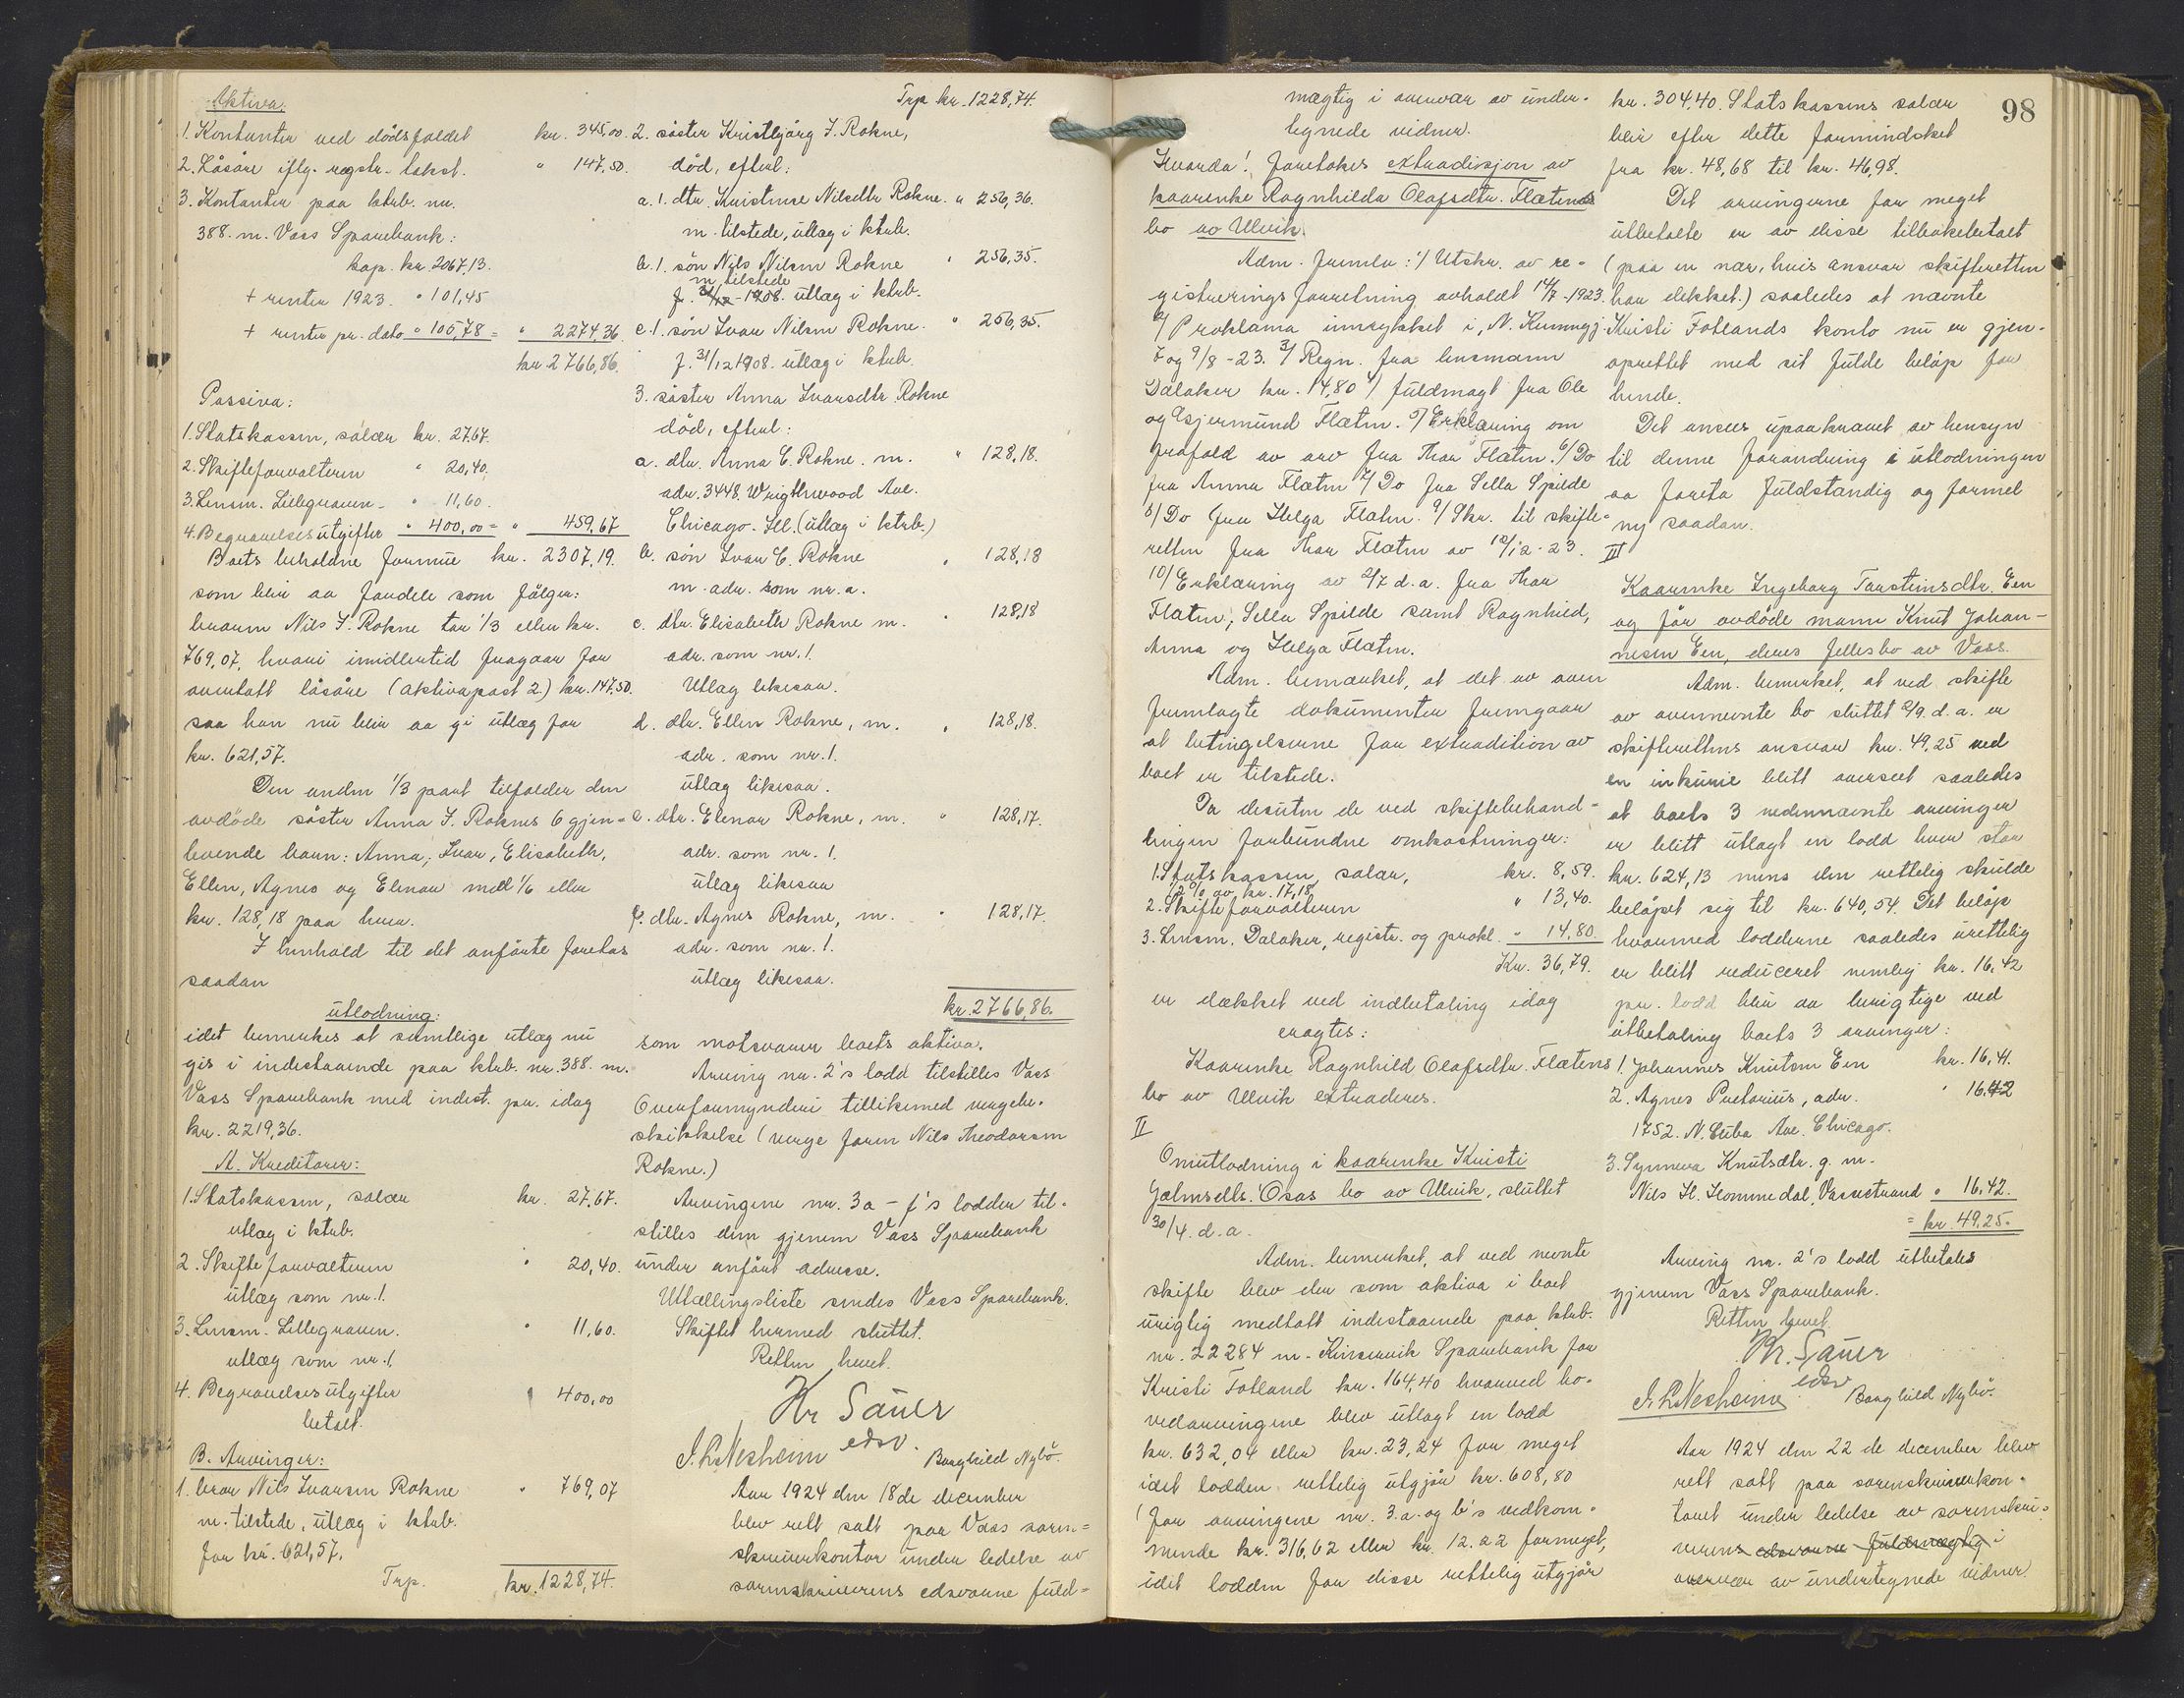 Aktiva:
1. Kontanter ved dödsfaldet kr. 345,00.
2. Lösöre iflg. regstr. takst. " 147,50.
3. Kontanter paa ktrb. nr.
388. m. Vass Sparebank:
kap. kr. 2067,13.
+ renter 1923. " 101,45
+ renter pr. dato " 105,78 = " 2274,36.
kr. 2766,86.
Passiva:
1. Statskassen, salær kr. 27,67.
2. Skifteforvalteren " 20,40.
3. Lensm. Lillegraven - " 11,60.
4. Begravelsesutgifter " 400,00 = " 459,67
Boets beholdne formue kr. 2307,19.
som blir aa fordele som fölger:
broren Nils I. Rokne tar 1/3 eller kr.
769,07, hvori imidlertid fragaar for
overtatt lösöre (aktivapost 2) kr. 147,50.
saa han nu blir aa gi utlæg for
kr. 621,57.
Den anden 1/3 part tilfalder den
avdöde söster Anna I. Roknes 6 gjen-
levende barn: Anna, Ivar, Elisabeth,
Ellen, Agnes og Elenor med 1/6 eller
kr. 128,18 paa hver.
I henhold til det anförte foretas
saadan
utlodning:
idet bemerkes at samtlige utlæg nu
gis i indestaaende paa ktrb. nr. 388. m.
Vass Sparebank med indest. pr. idag
kr. 2219,36.
A. Kreditorer:
1. Statskassen, salær kr. 27,67.
utlæg i ktrb.
2. Skifteforvalteren " 20,40.
utlæg som nr. 1.
3. Lensm. Lillegraven. " 11,60.
utlæg som nr. 1.
4. Begravelsesutgifter " 400,00
betalt.
B. Arvinger:
1. bror Nils Ivarsen Rokne " 769,07
m. tilstede, utlæg i ktrb.
for kr. 621,57.
Trp. kr. 1228,74.
Trp kr. 1228,74.
2. söster Kristbjörg I. Rokne,
död, efterl:
a. 1. dtr. Kristense Nilsdtr Rokne. " 256,36.
m. tilstede, utlæg i ktrb.
b. 1. sön Nils Nilsen Rokne " 256,35.
m. tilstede
f. 31/12-1908. utlæg i ktrb.
c. 1. sön Ivar Nilsen Rokne. " 256,35.
f. 31/12 1908. utlæg i ktrb.
3. söster Anna Ivarsdtr Rokne
död, efterl:
a. dtr. Anna C. Rokne. m. " 128,18.
adr. 3448. Wrigthwood Ave.
Chicago. Ill. (utlæg i ktrb.)
b. sön Ivar C. Rokne " 128,18
m. adr. som nr. a.
c. dtr. Elisabeth Rokne m. " 128,18
adr. som nr. 1.
Utlæg likesaa.
d. dtr. Ellen Rokne, m. " 128,18.
adr. som nr. 1.
utlæg likesaa.
e. dtr. Elenor Rokne, m. " 128,17.
adr. som nr. 1.
utlæg likesaa
f. dtr. Agnes Rokne, m. " 128,17.
adr. som nr. 1.
utlæg likesaa.
kr. 2766,86.
som motsvarer boets aktiva.
Arving nr. 2's lodd tilstilles Vass
Overformynderi tillikemed verge be-
skikkelse (verge faren Nils Theodorsen
Rokne.)
Arvingene nr. 3a - f's lodder til-
stilles dem gjenem Vass Sparebank
under anfört adresse.
Utællingsliste sendes Vass Sparebank.
Skiftet hermed sluttet.
Retten hevet.
Hr Sauer
edsv.
I. L. Nesheim Borghild Nybö.
Aar 1924 den 18de december
blev rett satt paa Vass soren-
skriverkontor under ledelse av
sorenskriverens edsvorne fuld-
98
mægtig i overvær av under-
tegnede vidner.
Hvorda! foretokes extradisjon av
kaarenke Ragnhilda Olafsdtr. Flætens
bo av Ulvik.
Adm. fremla: 1/ Utskr. av re-
gistreringsforretning avholdt 14/7-1923.
2/ Proklama innrykket i, N. Kunngj.
7 og 9/8-23. 3/ Regn. fra lensmann
Dalaker kr. 14,80 4/ fuldmagt fra Ole
og Gjermund Flæten. 5/ Erklæring om
frafald av arv fra Thor Flæten. 6/ Do
fra Anna Flæten 7/ Do fra Sella Spilde
8/ Do fra Helga Flæten. 9/ Skr. til skifte-
retten fra Thor Flæten av 12/12-23.
10/ Erklæring av 2/7 d.a. fra Thor
Flæten, Sella Spilde samt Ragnhild,
Anna og Helga Flæten.
Adm. bemerket, at det av oven
fremlagte dokumenter fremgaar
at betingelserne for extradition av
boet er tilstede.
Da desuten de ved skiftebehand-
lingen forbundne omkostninger:
1. Statskassen, salær, kr. 8,59.
1/2 % av kr. 17,18
2. Skifteforvalteren " 13,40.
3. Lensm. Dalaker, registr. og prokl. " 14,80.
Kr. 36,79.
er dækket ved indbetaling idag
eragtes:
Kaarenke Ragnhild Olafsdtr. Flætens
bo av Ulvik extraderes.
II
Omutlodning i kaarenke Kristi
Hjelmsdtr. Osas bo av Ulvik, sluttet
30/4. d.a.
Adm. bemerket, at ved nevnte
skifte blev der som aktiva i boet
uriglig medtatt indestaaende paa ktrb.
nr. 22284 m. Kinservik Sparebank for
Kristi Fotland kr. 164,40 hvorved ho-
vedarvingene blev utlagt en lodd
kr. 632,04 eller kr. 23,24 for meget
idet lodden rettelig utgjör kr. 608,80
(for arvingene nr. 3.a. og b's vedkom-
mende kr. 316,62 eller kr. 12.22 formeget,
idet lodden for disse rettelig utgjör
kr. 304,40. Statskassens salær
blir efter dette formindsket
fra kr. 48,68 til kr. 46,98.
Det arvingerne for meget
utbetalte er av disse tilbakebetalt
(paa en nær, hvis ansvar skifteretten
har dekket.) saaledes at nævnte
Kristi Fotlands konto nu er gjen-
oprettet med sit fulde belöp for
hende.
Det ansees upaakrævet av hensyn
til denne forandring i utlodningen
aa foreta fuldstændig og formel
ny saadan.
III
Kaarenke Ingeborg Tarsteinsdtr. Een
og för avdöde mann Knut Johan-
nesen Een, deres fellesbo av Vass.
Adm. bemerket, at ved skifte
av ovennevnte bo sluttet 2/9. d.a. er
skifterettens ansvar kr. 49,25 ved
en inkurie blitt overseet saaledes
at boets 3 nedennævnte arvinger
er blitt utlagt en lodd hver stor
kr. 624,13 mens den rettelig skulde
belöpet sig til kr. 640,54. Det belöp
hvormed lodderne saaledes urettelig
er blitt reduceret nemlig kr. 16,42
pr. lodd blir aa berigtige ved
utbetaling boets 3 arvinger:
1. Johannes Knutsen Een kr. 16,41.
2. Agnes Pretorius, adr. " 16.42
1752. N. Cuba Ave. Chicago.
3. Synneva Knutsdtr. g. m.
Nils H. Hommedal, Vassestrand " 16,42.
= kr. 49,25.
Arving nr. 2's lodd utbetales
gjenem Vass Sparebank.
Retten hevet.
Hr. Sauer
edsv
I. L. Nesheim Borghild Nybö.
Aar 1924 den 22 de december blev
rett satt paa sorenskriverkon-
toret under ledelse av sorenskri-
verens edsvorne fuldmægtig i
overvær av undertegnede vidner